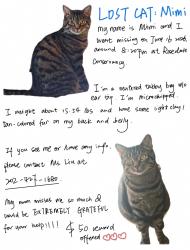 LOST CAT: Mimi
my name is Mimi and I
went missing on June 16 2020,
around 8:20pm at Rosedale
Conservancy
I'm a neutered tabby boy
ear by I'm microchipped.
I weight about 15.26 lbs and have some light clay/
tan-colored fur on my back and belly.
If you see me or have any info,
please contact Ms Liu at
My mom misses me so much &
would be EXTREMELY GRATEFUL
for your help!!!!
$50 reward
offered